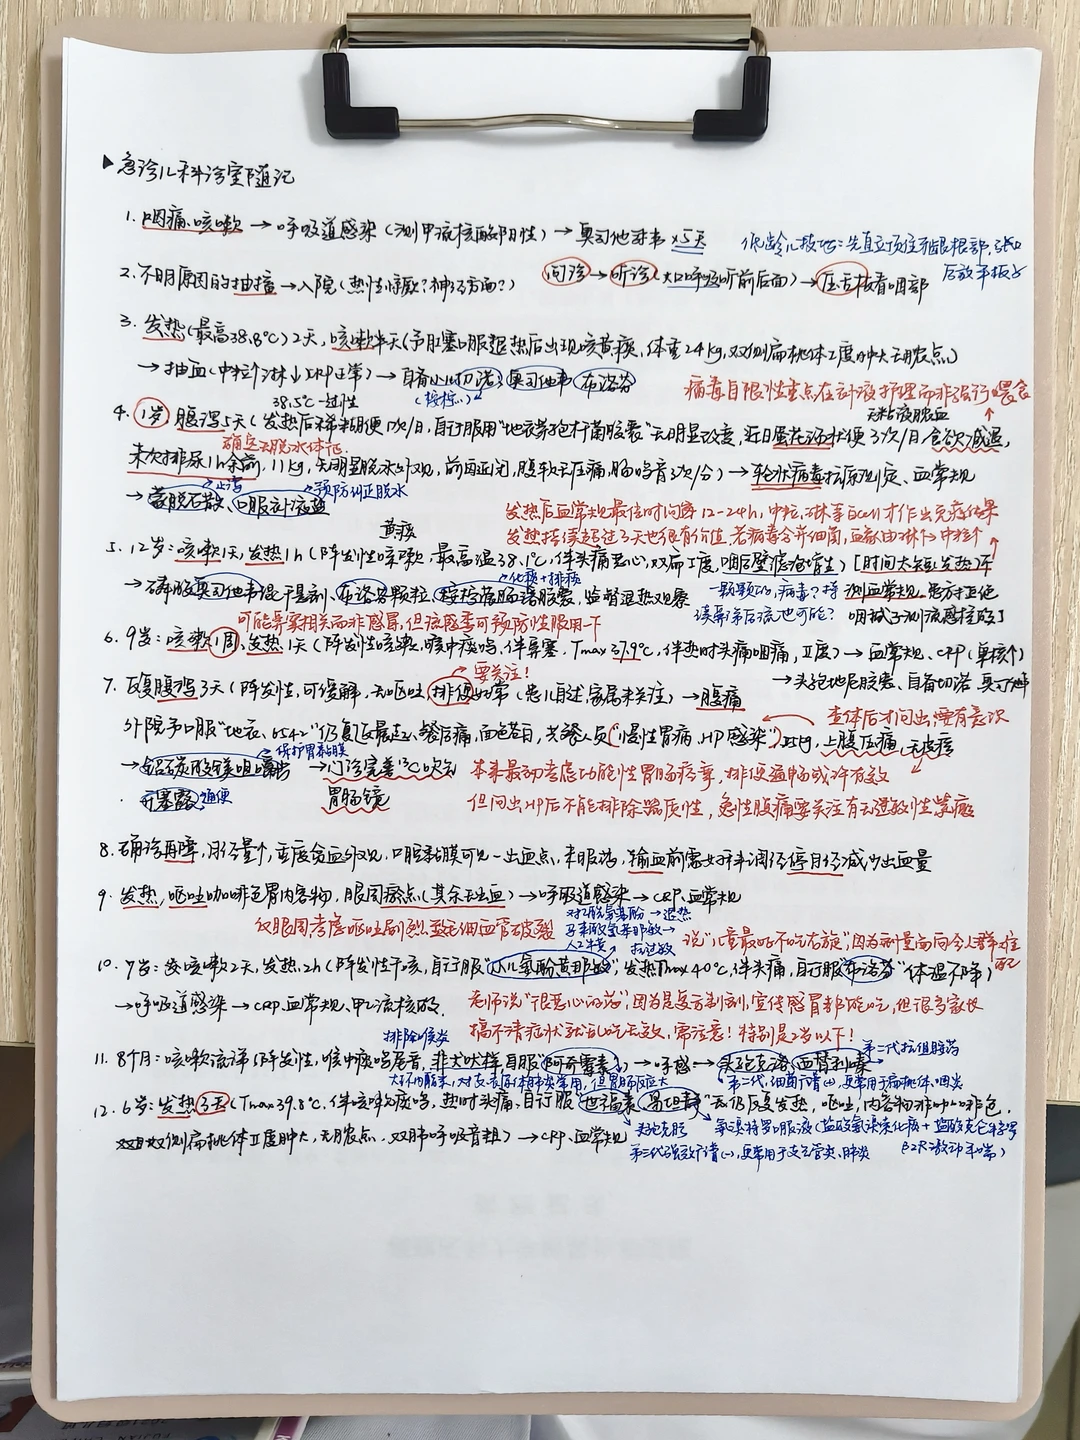 ▶急诊儿科诊室随记
1. 咽痛、咳嗽→呼吸道感染(测甲流核酸阳性)→奥司他韦×5天
低龄儿技巧:先直立顶住牙龈根部,张口后放平板子
2. 不明原因的抽搐→入院(热性惊厥?神经方面?)
问诊→听诊(大口呼吸听前后面)→压舌板看咽部
3. 发热(最高38.8℃)2天,咳嗽半天(予肛塞口服退热后出现咳黄痰,体重24kg,双侧扁桃体Ⅰ度肿大无脓点)
→抽血(中粒↑淋↓CRP正常)→自备小儿切诺、奥司他韦 布洛芬
(桉柠)
病毒自限性重点在补液护理而非强行喂食
38.5℃一过性
无粘液脓血
4. 1岁,腹泻5天(发热后稀糊便1次/日,自行服用"地衣芽孢杆菌胶囊"无明显改变,近日蛋花汤状便3次/日,食欲减退,
确定无脱水体征
末次排尿1h余前,11kg,无明显脱水外观,前囟近闭,腹软无压痛,肠鸣音3次/分)→轮状病毒抗原测定、血常规
→蒙脱石散、口服补液盐
止泻
预防纠正脱水
发热后血常规最佳时间序12-24h,中粒、淋等白cell才作出免疫结果
发热持续超过3天也很有价值,若病毒合并细菌,血象由淋↑→中粒↑
黄痰
5. 12岁:咳嗽1天,发热1h(阵发性咳嗽,最高温38.1℃,伴头痛恶心,双扁Ⅰ度,咽后壁滤泡增生)[时间太短:发热1h不
→磷酸奥司他韦混干悬剂、布洛芬颗粒、桉柠蒎肠溶胶囊,监督退热观察
化痰+排痰
一颗颗的,病毒?持续鼻涕后流也可能?
测血常规,患方拒绝咽拭子测流感核酸]
可能鼻塞相关而非感冒,但流感季可预防性服用一下
6. 9岁:咳嗽1周,发热1天(阵发性咳嗽,喉中痰鸣,伴鼻塞,Tmax 37.9℃,伴热时头痛咽痛,Ⅱ度)→血常规、CRP(单核↑)
→头孢地尼胶囊、自备切诺、奥司他韦
7. 反复腹痛3天(阵发性,可缓解,无呕吐,排便好常(患儿自述,家属未关注)→腹痛
要关注!
查体后才问出,要有意识
外院予口服"地衣,654-2"仍反复晨起、餐后痛,面色苍白,共餐人员"慢性胃病,HP感染")35kg,上腹压痛,无皮疹
→铝碳酸镁咀嚼片 →门诊完善¹³C吹气
保护胃黏膜
开塞露 通便
胃肠镜
本来最初考虑功能性胃肠病等,排便通畅或许有效
但问出HP后不能排除器质性,急性腹痛要关注有无过敏性紫癜
8. 确诊再障,月经量↑,重度贫血外观,口腔黏膜可见一出血点,未服药,输血前需妇科调经停月经减少出血量
9. 发热,呕吐咖啡色胃内容物,眼周瘀点(其余无出血)→呼吸道感染→CRP、血常规
仅眼周考虑呕吐剧烈致毛细血管破裂
对乙酰氨基酚→退热
马来酸氯苯那敏→抗过敏
人工牛黄
说"儿童最好不吃右旋",因为剂量高向令人群难控
10. 7岁:咳嗽2天,发热2h(阵发性干咳,自行服"小儿氨酚黄那敏",发热Tmax 40℃,伴头痛,自行服"布洛芬"体温不降)
→呼吸道感染→CRP、血常规、甲乙流核酸.
老师说"很恶心的药",因为是复方制剂,宣传感冒都能吃,但很多家长
搞不清症状就乱吃无效,需注意!特别是2岁以下!
排除喉炎
第二代抗组胺药
11. 8个月:咳嗽流涕(阵发性,喉中痰鸣尾音,非犬吠样,自服"阿奇霉素")→呼感→头孢克洛、西替利嗪
大环内酯类,对支、衣原体肺炎常用,但胃肠反应大
第二代,细菌广谱(-),更常用于扁桃体、咽炎
12. 6岁:发热3天(Tmax 39.8℃,伴咳嗽有痰鸣,热时头痛,自行服"世福素、易坦静"无仍反复发热,呕吐,内容物非咖啡色,
双侧扁桃体Ⅱ度肿大,无脓点,双肺呼吸音粗)→CRP、血常规
头孢克肟
第三代强效广谱(-),更常用于支气管炎、肺炎
氨溴特罗口服液(盐酸氨溴索化痰+盐酸克仑特罗β2R激动平喘)